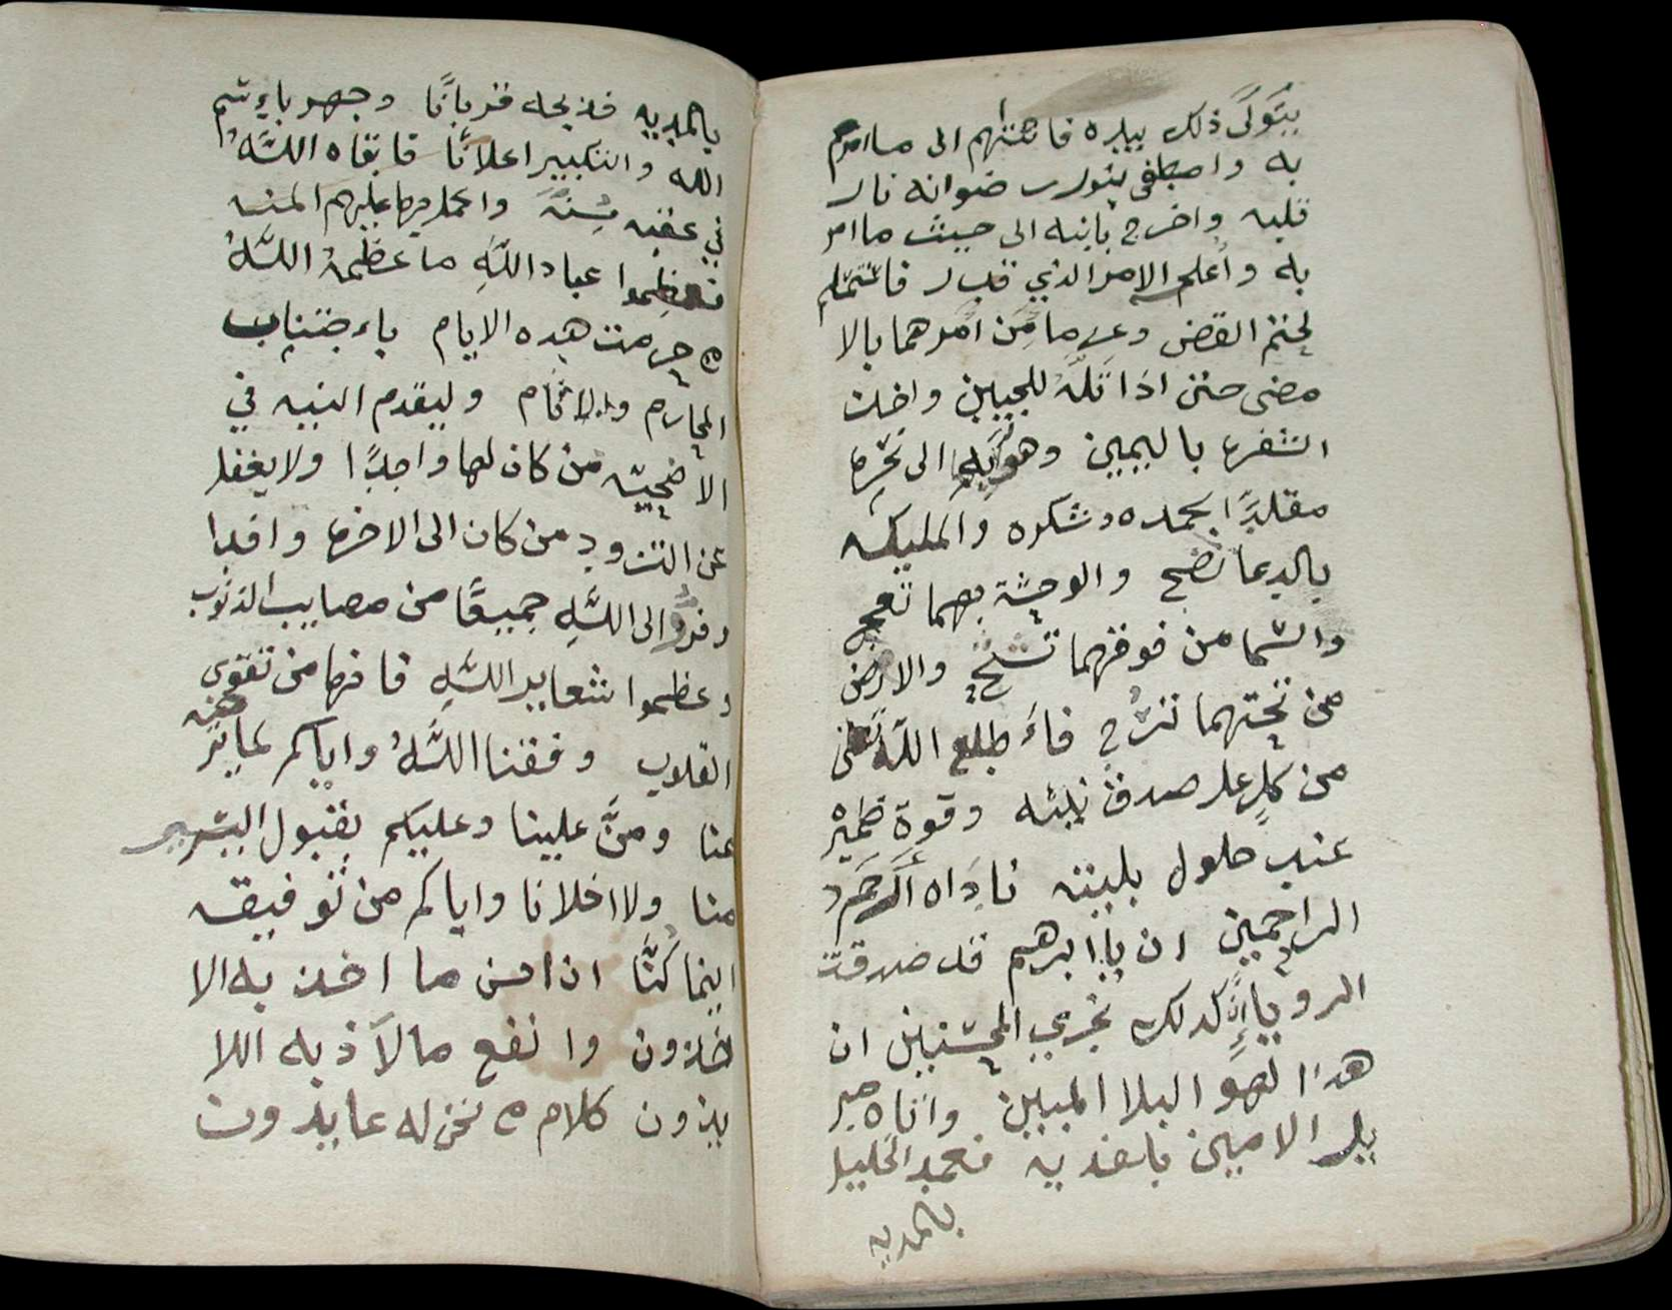 يتولى ذلك بيده فانتهم الى ما امرم
به واصطفى بنور رضوانه نار
قلبه واخرج بابنه الى حيث ما امر
به واعلمه الامر الذي قد ر فاستسلم
لحتم القضى وعزما من امرهما بالا
مضى حتى اذا تله للجبين واخذ
الشفره باليمين وهو بها الى نحره
مقلدا بحمده وشكره والمليكه
بالدعا تضج والوحشة بهما تعج
والسما من فوقهما تشج والارض
من تحتهما ترج فاء طلع الله تعالى
من كل على صدق نيته وقوة ضميره
عند حلول بليته ناداه ارحم
الراحمين ان يا ابرهيم قد صدقت
الرويا إن كدلك نجزي المحسنين ان
هدا لهو البلا المبين واتاه جبر
يل الامين بالفديه فعمد الخليل
بالمديه
بالمديه فذبحه قربانا وجهر باءسم
الله والتكبير اعلانا فابقاه الله
في عقبه سنة واكمل بها عليهم المنه
فعظموا عباد الله ما عظمه الله
من حرمت هده الايام باء جتناب
المحارم والاثام وليقدم النيه في
الاضحيته من كان لها واجدا ولا يغفل
عن التزود من كان الى الاخره وافدا
وفروا الى الله جميعا من مصايب الذنوب
وعظموا شعاير الله فانها من تقوى
القلوب وفقنا الله واياكم لما يرضيه
عنا ومن علينا وعليكم بقبول اليسير
منا ولا اخلانا واياكم من توفيقه
اينما كنا ان احسن ما اخذ به الا
خذون وانفع ما لاذ به اللا
يذون كلام من نحن له عابدون